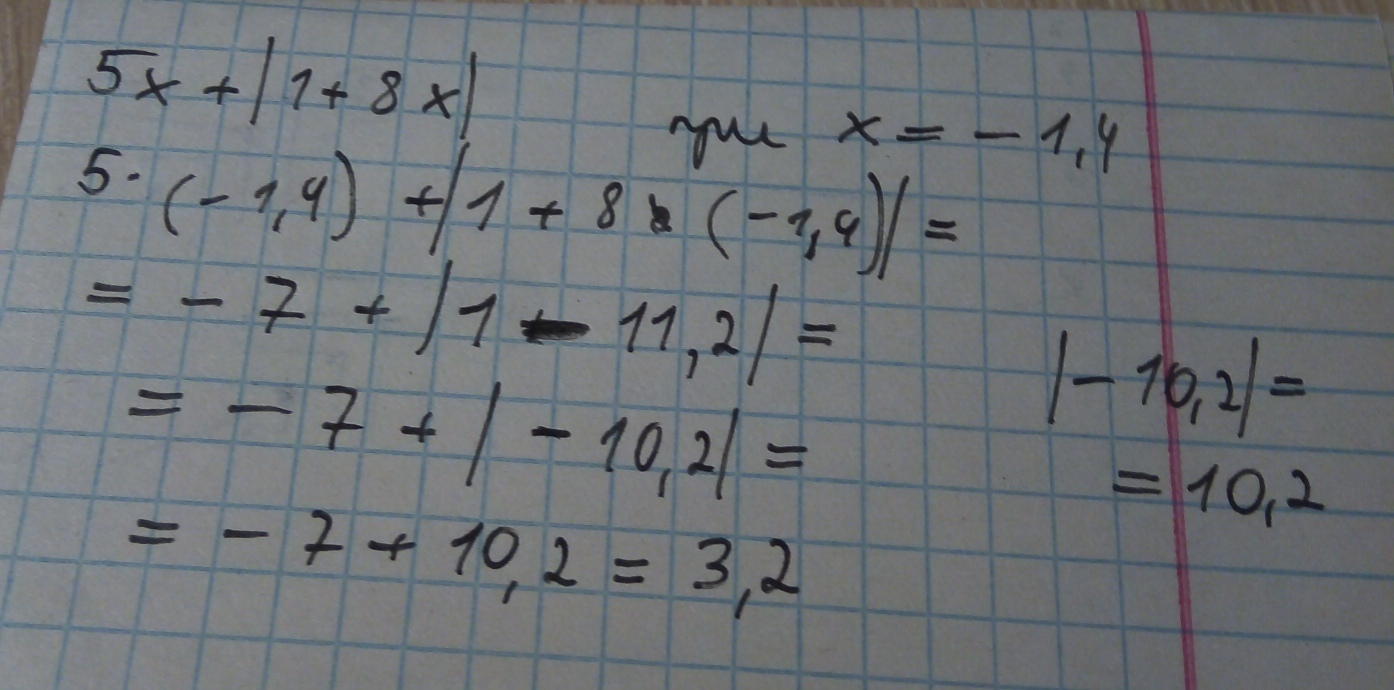 5x + |1 + 8x| при x = - 1,4
5 · (- 1,4) + |1 + 8 · (- 1,4)| =
= - 7 + |1 - 11,2| =
= - 7 + | - 10,2| =
= - 7 + 10,2 = 3,2
|- 10,2| =
= 10,2